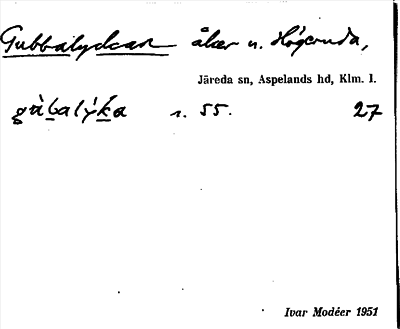 Gubbalyckan åker n. Högeruda,
Järeda sn, Aspelands hd, Klm. l.
gùbalýka n. 55. 27
Ivar Modéer 1951